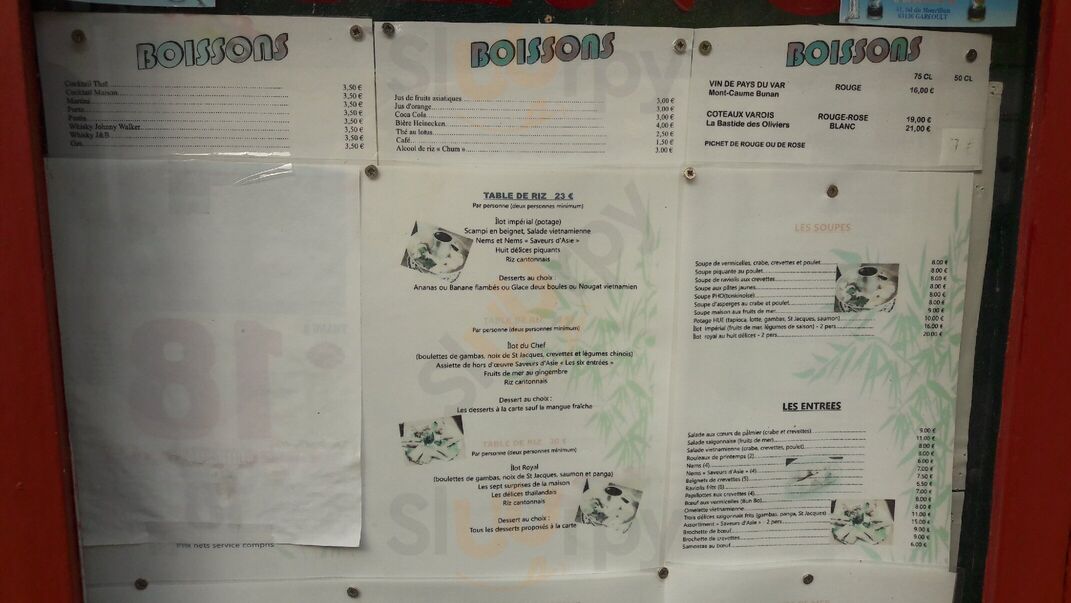 41, bd du Mourillon
83136 GAREOULT
BOISSONS
Cocktail Thaï 3,50 €
Cocktail Maison 3,50 €
Martini 3,50 €
Porto 3,50 €
Pastis 3,50 €
Whisky Johnny Walker 3,50 €
Whisky J&B 3,50 €
Gin 3,50 €
BOISSONS
Jus de fruits asiatiques 3,00 €
Jus d'orange 3,00 €
Coca Cola 3,00 €
Bière Heineken 4,00 €
Thé au lotus 2,50 €
Café 1,50 €
Alcool de riz « Chum » 3,00 €
BOISSONS
75 CL 50 CL
VIN DE PAYS DU VAR ROUGE 16,00 €
Mont-Caume Bunan
COTEAUX VAROIS ROUGE-ROSE 19,00 €
La Bastide des Oliviers BLANC 21,00 €
PICHET DE ROUGE OU DE ROSE 7 €
TABLE DE RIZ 23 €
Par personne (deux personnes minimum)
Îlot impérial (potage)
Scampi en beignet, Salade vietnamienne
Nems et Nems « Saveurs d'Asie »
Huit délices piquants
Riz cantonnais
Desserts au choix :
Ananas ou Banane flambés ou Glace deux boules ou Nougat vietnamien
TABLE DE RIZ
Par personne (deux personnes minimum)
Îlot du Chef
(boulettes de gambas, noix de St Jacques, crevettes et légumes chinois)
Assiette de hors d'œuvre Saveurs d'Asie « Les six entrées »
Fruits de mer au gingembre
Riz cantonnais
Dessert au choix :
Les desserts à la carte sauf la mangue fraîche
TABLE DE RIZ 30 €
Par personne (deux personnes minimum)
Îlot Royal
(boulettes de gambas, noix de St Jacques, saumon et panga)
Les sept surprises de la maison
Les délices thaïlandais
Riz cantonnais
Dessert au choix :
Tous les desserts proposés à la carte
LES SOUPES
Soupe de vermicelles, crabe, crevettes et poulet 8.00 €
Soupe piquante au poulet 8.00 €
Soupe de raviolis aux crevettes 8.00 €
Soupe aux pâtes jaunes 8.00 €
Soupe PHO(tonkinoise) 8.00 €
Soupe d'asperges au crabe et poulet 8.00 €
Soupe maison aux fruits de mer 9.00 €
Potage HUÉ (tapioca, lotte, gambas, St Jacques, saumon) 10.00 €
Îlot Impérial (fruits de mer, légumes de saison) - 2 pers 16.00 €
Îlot royal au huit délices - 2 pers 20.00 €
LES ENTREES
Salade aux cœurs de palmier (crabe et crevettes) 9.00 €
Salade saïgonnaise (fruits de mer) 11.00 €
Salade vietnamienne (crabe, crevettes, poulet) 8.00 €
Rouleaux de printemps (2) 8.00 €
Nems (4) 6.00 €
Nems « Saveurs d'Asie » (4) 7.00 €
Beignets de crevettes (5) 7.50 €
Raviolis frits (5) 6.50 €
Papillottes aux crevettes (4) 7.00 €
Bœuf aux vermicelles (Bun Bo) 8.00 €
Omelette vietnamienne 8.00 €
Trois délices saïgonnais frits (gambas, panga, St Jacques) 11.00 €
Assortiment « Saveurs d'Asie » - 2 pers 15.00 €
Brochette de bœuf 9.00 €
Brochette de crevettes 9.00 €
Samossas au bœuf 6.00 €
Prix nets service compris
Sluurpy
Sluurpy
Sluurpy